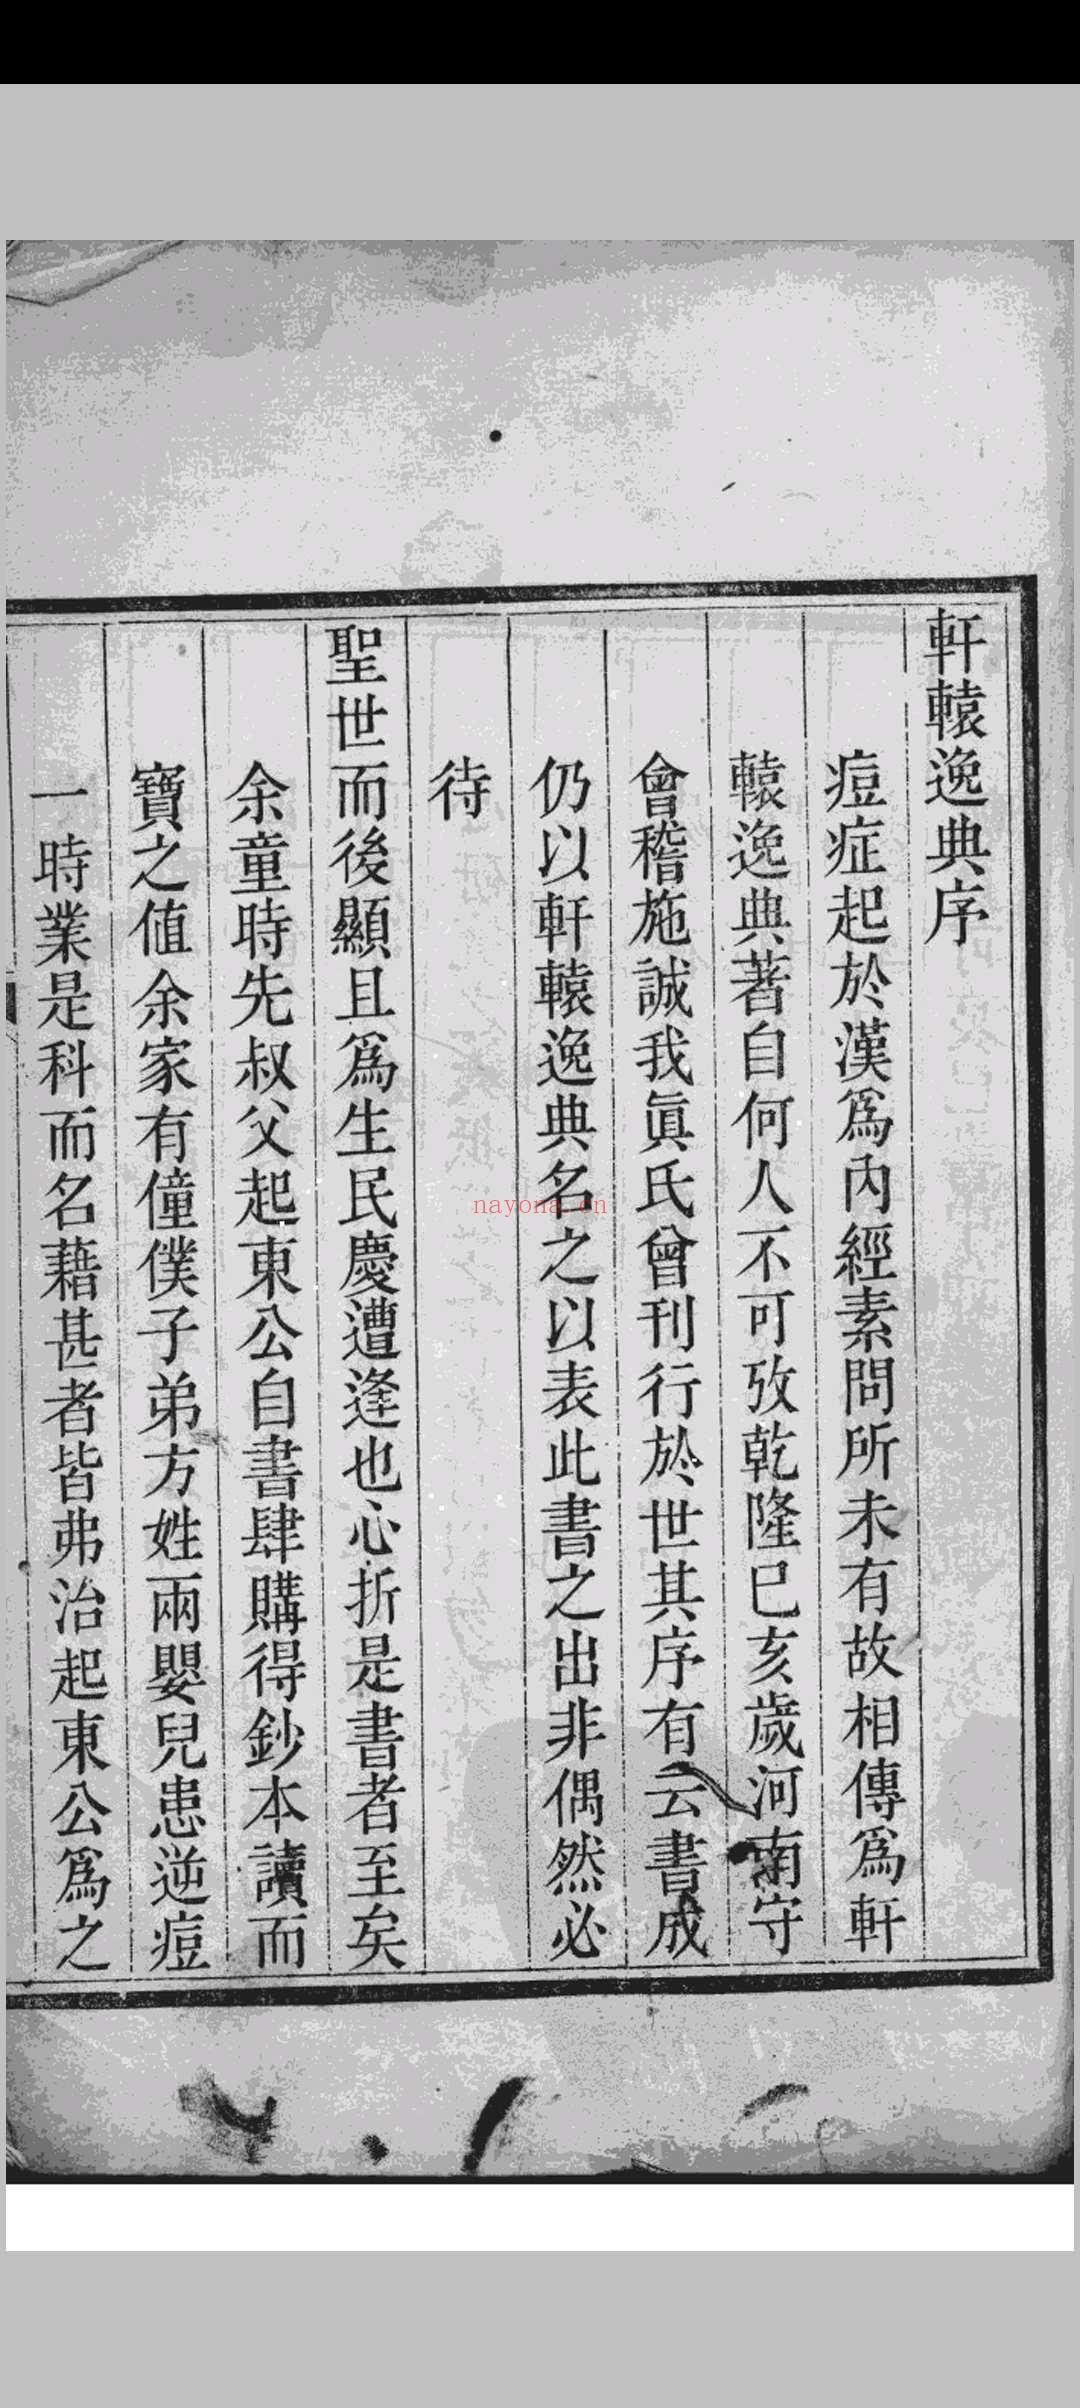 軒轅逸典序
痘症起於漢爲內經素問所未有故相傳爲軒
轅逸典著自何人不可攷乾隆己亥歲河南守
會稽施誠我眞氏曾刊行於世其序有云書成
仍以軒轅逸典名之以表此書之出非偶然必
待
聖世而後顯且爲生民慶遭逢也心折是書者至矣
余童時先叔父起東公自書肆購得鈔本讀而
寶之値余家有僮僕子弟方姓兩嬰兒患逆痘
一時業是科而名藉甚者皆弗治起東公爲之
nayona.cn